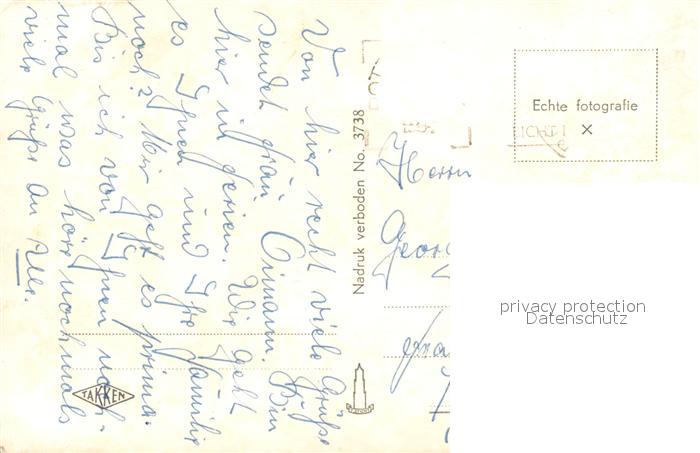 Von hier recht viele Grüße
sendet Frau Bin
hier in Ferien. Wie geht
es Ihnen und Ihre Familie
noch? Mir geht es prima.
Bis ich von Ihnen noch-
mal was höre nochmals
viele Grüße an
TAKKEN
Nadruk verboden No. 3738
Echte fotografie
Herrn
privacy protection
Datenschutz